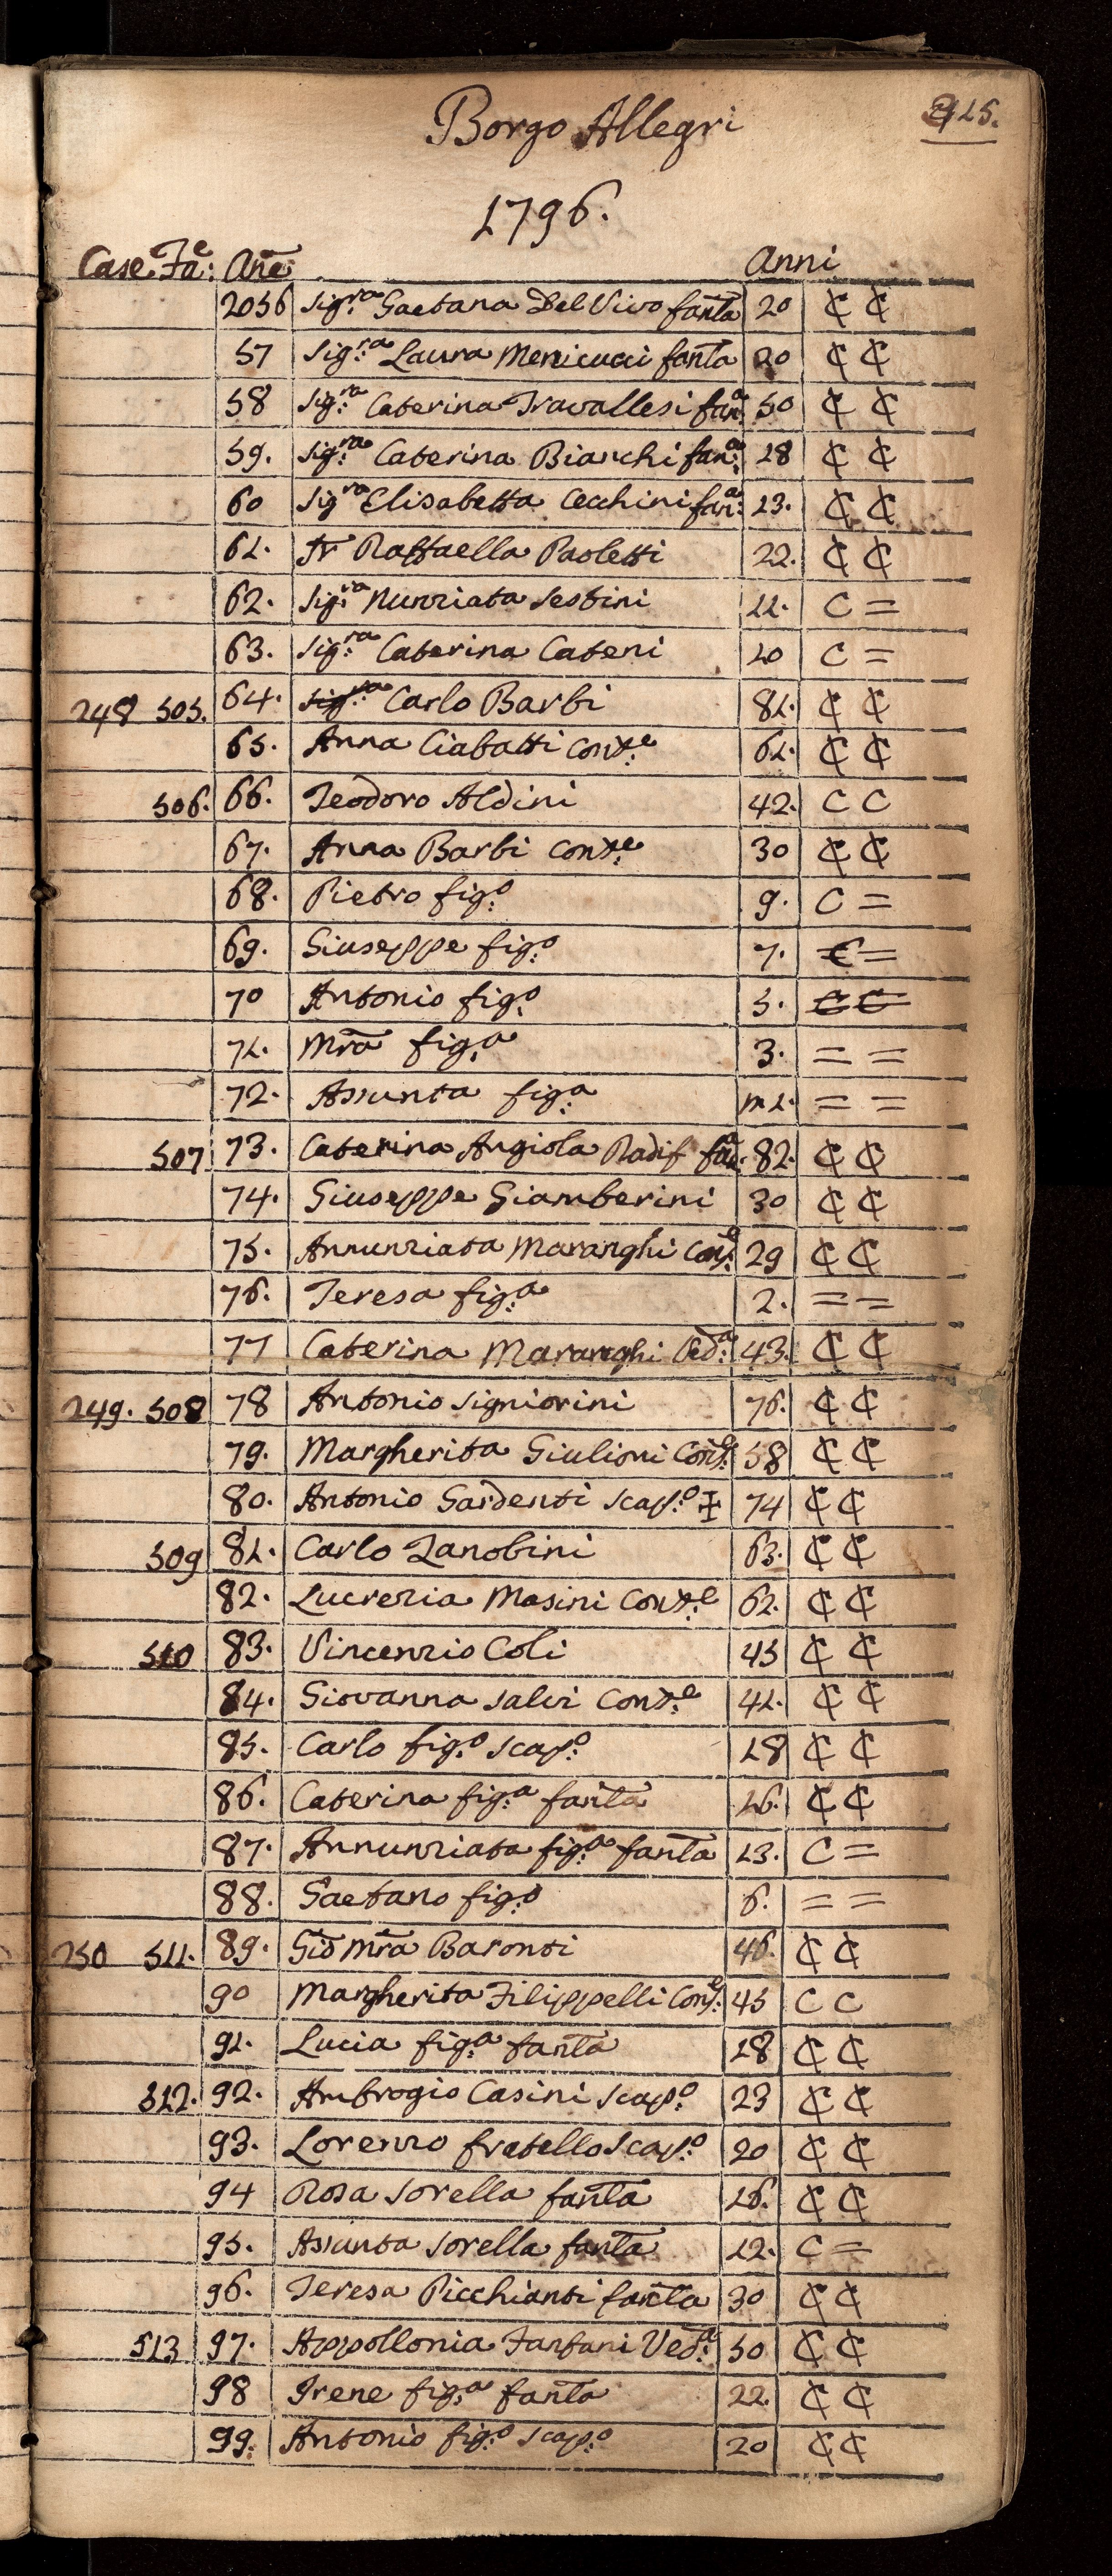 Borgo Allegri
215.
1796.
Case. Fae: Ane Anni
2056 Sig.ra Gaetana Del Vivo fanta 20 ₵ ₵
57 Sig.ra Laura Menicucci fanta 20 ₵ ₵
58 Sig.ra Caterina Travallesi fan:a 50 ₵ ₵
59. Sig.ra Caterina Bianchi fan:a 18 ₵ ₵
60 Sig.ra Elisabetta Cecchini fan:a 13. ₵ ₵
61. Sr Raffaella Paoletti 22. ₵ ₵
62. Sig.ra Nunziata Sestini 11. C =
63. Sig.ra Caterina Cateni 10 C =
248 505. 64. Carlo Barbi 81. ₵ ₵
65. Anna Ciabatti Cons:e 61. ₵ ₵
506. 66. Teodoro Aldini 42. C C
67. Anna Barbi Cons:e 30 ₵ ₵
68. Pietro fig:o 9. C =
69. Giuseppe fig:o 7. C =
70 Antonio fig:o 5. C C
71. Mra fig:a 3. = =
72. Assunta fig:a m 1. = =
507 73. Caterina Angiola Radif fan:a 82. ₵ ₵
74. Giuseppe Giamberini 30 ₵ ₵
75. Annunziata Maranghi Cons:e 29 ₵ ₵
76. Teresa fig:a 2. = =
77 Caterina Maranghi Ved:a 43. ₵ ₵
249. 508 78 Antonio Signiorini 76. ₵ ₵
79. Margherita Giulioni Cons:e 58 ₵ ₵
80. Antonio Gardenti Scap:o ‡ 74 ₵ ₵
509 81. Carlo Zanobini 63. ₵ ₵
82. Lucrezia Masini Cons:e 62. ₵ ₵
510 83. Vincenzio Coli 45 ₵ ₵
84. Giovanna Salvi Cons:e 41. ₵ ₵
85. Carlo fig:o Scap:o 18 ₵ ₵
86. Caterina fig:a fanta 16. ₵ ₵
87. Annunziata fig:a fanta 13. C =
88. Gaetano fig:o 6. = =
250 511. 89. Gio Mra Baronti 46. ₵ ₵
90 Margherita Filippelli Cons:e 45 C C
91. Lucia fig:a fanta 18 ₵ ₵
512. 92. Ambrogio Casini Scap:o 23 ₵ ₵
93. Lorenzo fratello Scap:o 20 ₵ ₵
94 Rosa Sorella fanta 16. ₵ ₵
95. Assunta Sorella fanta 12. C =
96. Teresa Picchianti fanta 30 ₵ ₵
513 97. Appollonia Fanfani Ved:a 50 ₵ ₵
98 Irene fig:a fanta 22. ₵ ₵
99. Antonio fig:o Scap:o 20 ₵ ₵